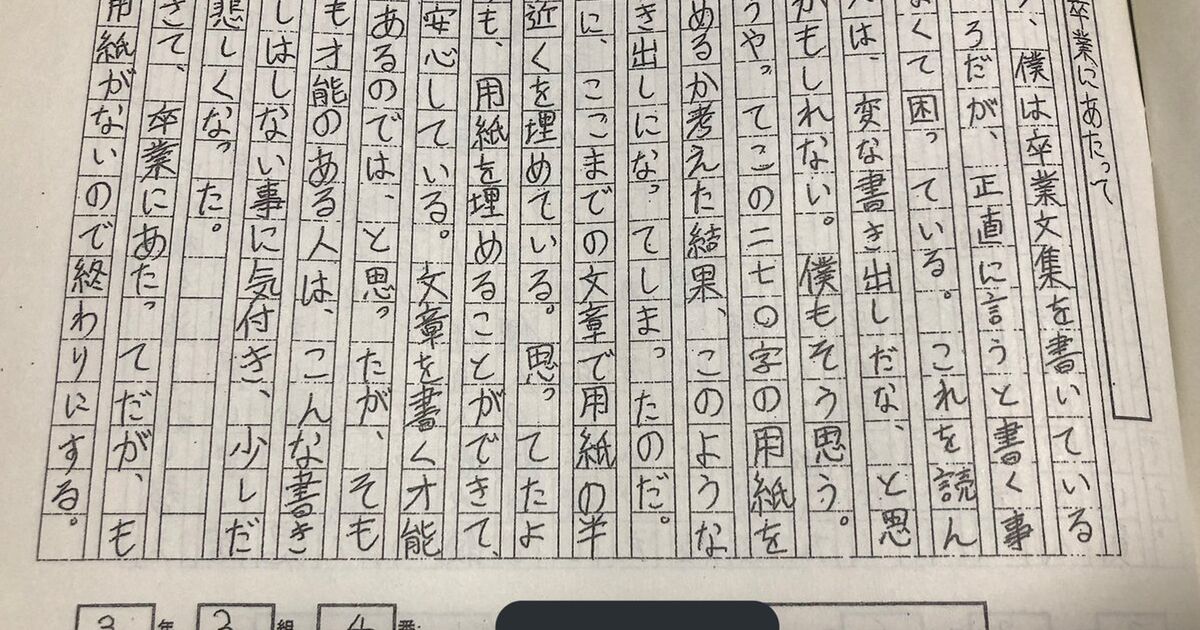 卒業にあたって
、僕は卒業文集を書いている
ろだが、正直に言うと書く事
なくて困っている。これを読ん
は、変な書き出しだな、と思
かもしれない。僕もそう思う。
うやってこの二七〇字の用紙を
めるか考えた結果、このような
き出しになってしまったのだ。
に、ここまでの文章で用紙の半
近くを埋めている。思ってたよ
も、用紙を埋めることができて、
安心している。文章を書く才能
あるのでは、と思ったが、そも
も才能のある人は、こんな書き
しはしない事に気付き、少しだ
悲しくなった。
さて、卒業にあたってだが、も
用紙がないので終わりにする。